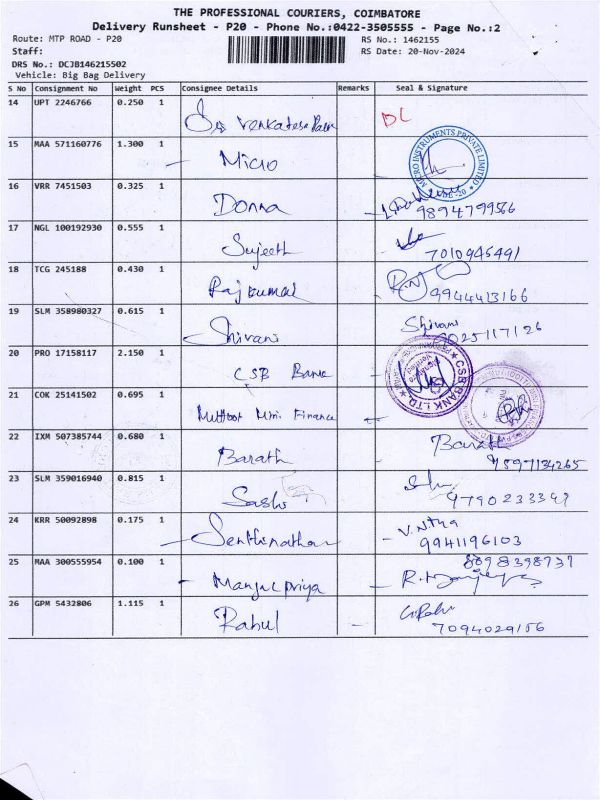 THE PROFESSIONAL COURIERS, COIMBATORE
Delivery Runsheet - P20 - Phone No.:0422-3505555 - Page No.:2
Route: MTP ROAD - P20 RS No.: 1462155
Staff: RS Date: 20-Nov-2024
DRS No.: DCJB146215502
Vehicle: Big Bag Delivery
S No Consignment No Weight PCS Consignee Details Remarks Seal & Signature
14 UPT 2246766 0.250 1 DL
15 MAA 571160776 1.300 1 Micro MICRO INSTRUMENTS PRIVATE LIMITED
16 VRR 7451503 0.325 1 Donna 9894799566
17 NGL 100192930 0.555 1 Sujeeth 7010945491
18 TCG 245188 0.430 1 Raj kumar 9944413166
19 SLM 358980327 0.615 1 Shivani Shivani 9025117126
20 PRO 17158117 2.150 1 CSB Bank CSB BANK LTD.
21 COK 25141502 0.695 1 Muthoot Mini Finance
22 IXM 507385744 0.680 1 Barath Barath 9597134265
23 SLM 359016940 0.815 1 Sashi
24 KRR 50092898 0.175 1 Senthilnathan 9941196103
25 MAA 300555954 0.100 1 8098398737
26 GPM 5432806 1.115 1 Rahul 7094029156